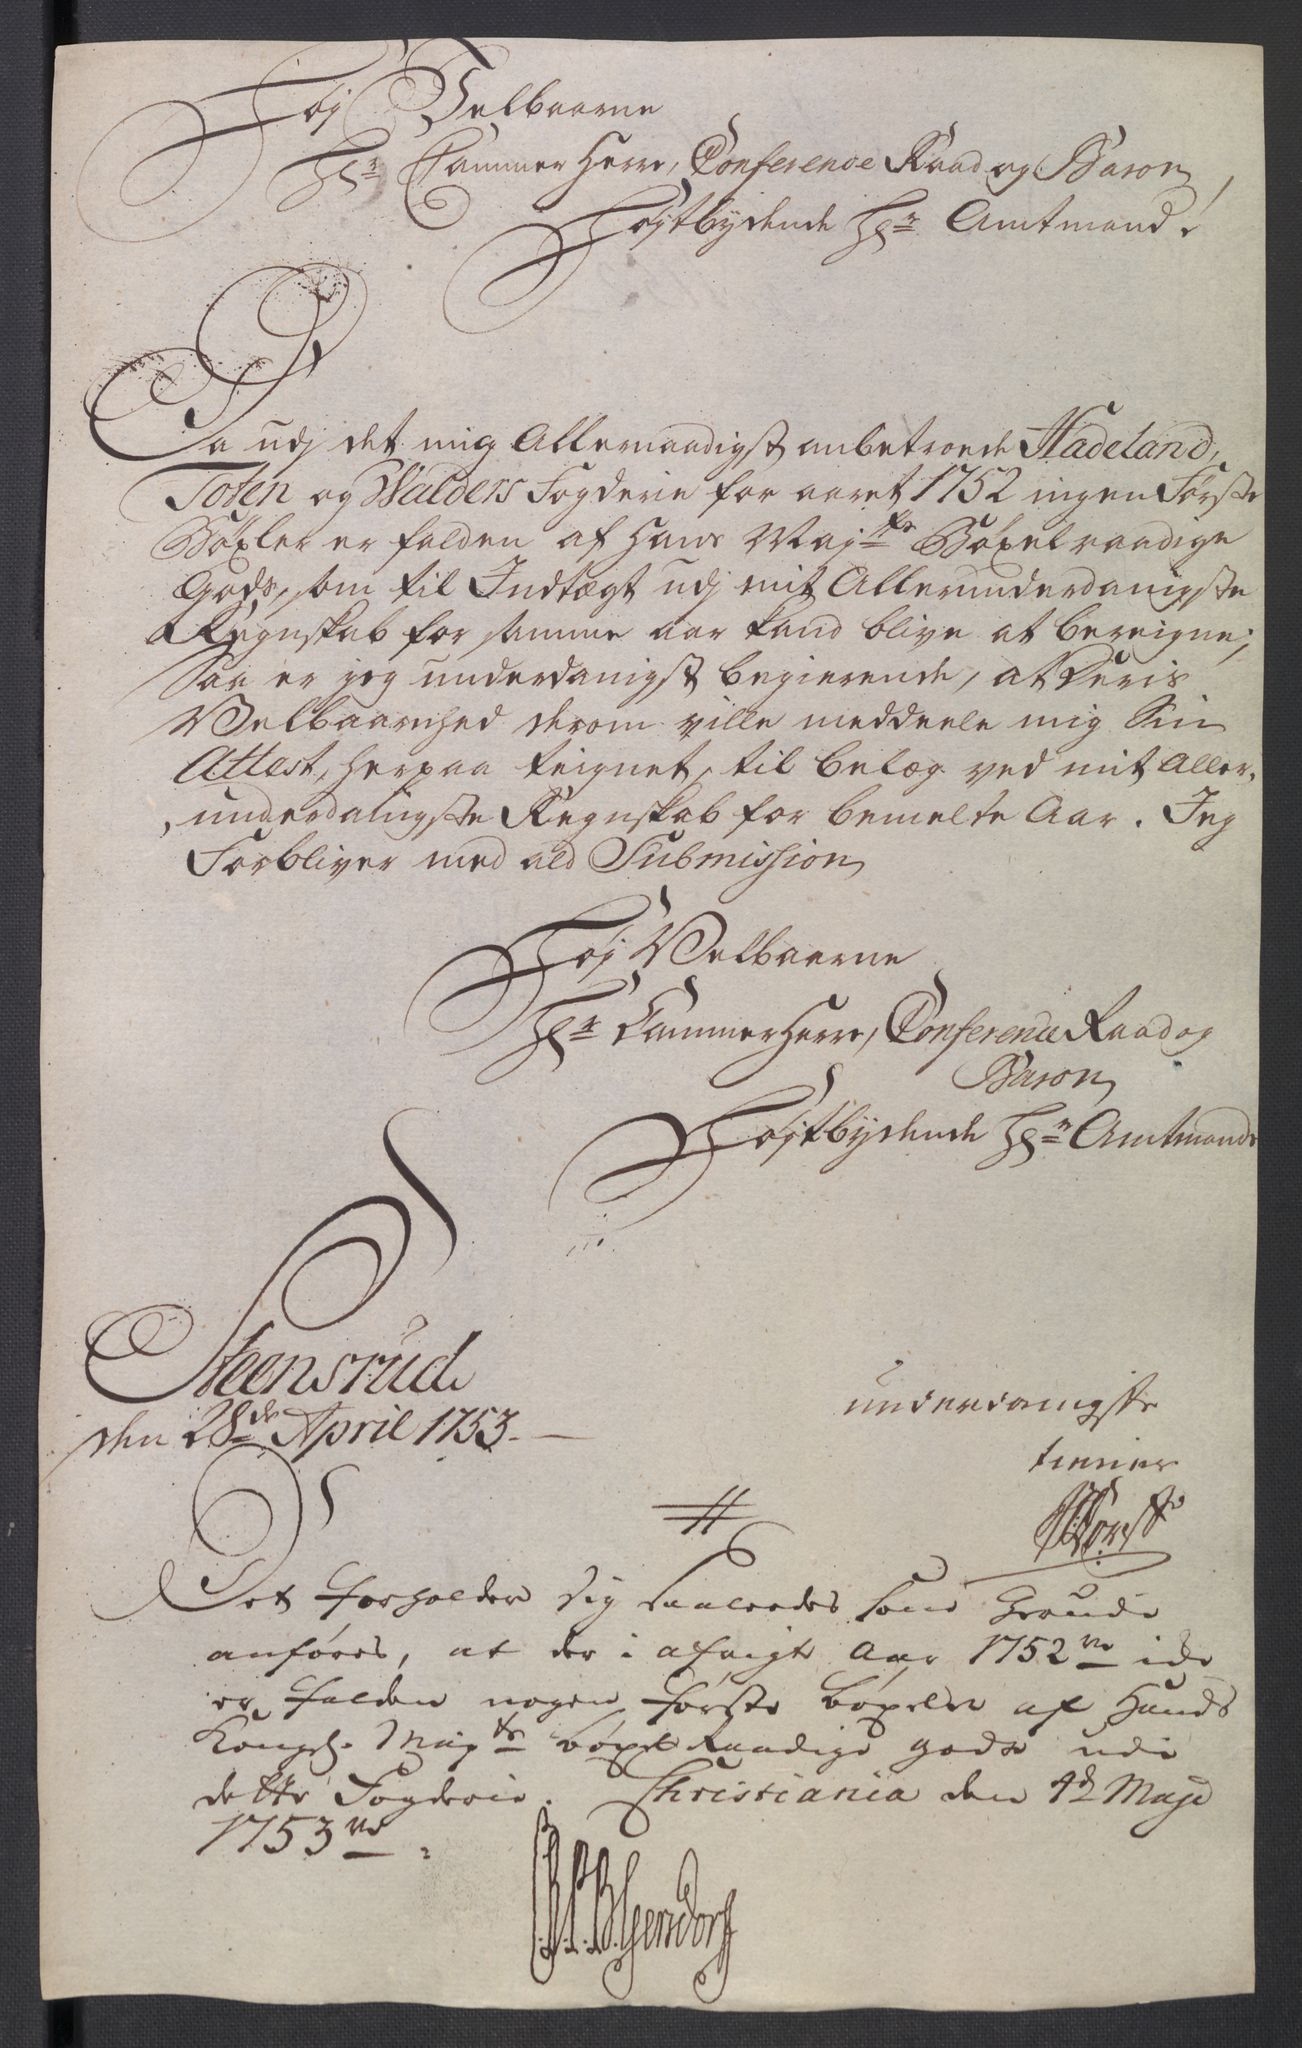 Høj Velbaarne
Hr. Cammer Herre, Conference Raad og Baron,
Højtbydende Hr. Amtmand!
Da udj det mig Allernaadigst anbetroede Hadeland,
Toten og Walders Fogderie for aaret 1752 ingen Første
Bøxler er falden af Hans Majts Bøxel raadige
Gods, som til Indtægt udj mit Allerunderdanigste
Regnskab for samme aar kand blive at bereigne;
Saa er jeg underdanigst begierende, at Deris
Velbaarnhed derom ville meddeele mig Sin
Attest, herpaa teignet, til belæg ved mit Aller-
underdanigste Regnskab for bemelte Aar. Jeg
Forbliver med ald Submission
Høj Velbaarne
Hr. Cammer Herre, Conference Raad og
Baron
Højtbydende Hr. Amtmands
Steensrud
den 28de April 1753.
underdanigste
tienner
Det forholder sig saaledes som Hr.
anføres, at der i afvigte Aar 1752 icke
er falden nogen første bøxeler af Hands
Kongel. Majts bøxel Raadige gods udi
dette Fogderie. Christiania den 4de Maji
1753.